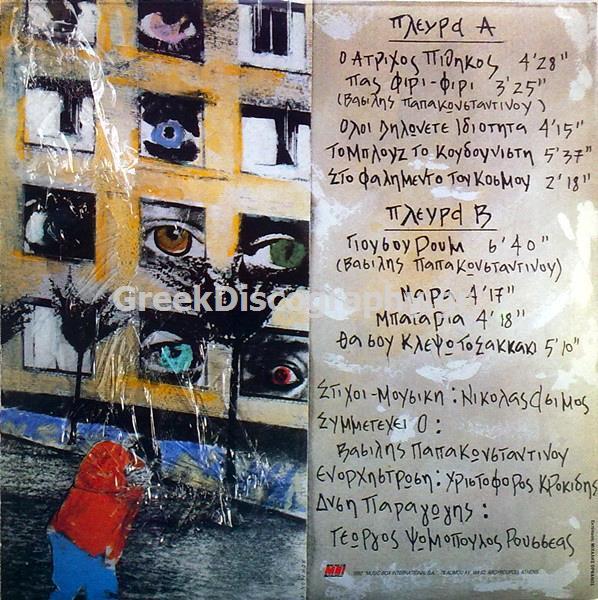 Πλευρά Α
Ο ΑΤΡΙΧΟΣ ΠΙΘΗΚΟΣ 4'28"
ΠΑΣ ΦΙΡΙ-ΦΙΡΙ 3'25"
(ΒΑΣΙΛΗΣ ΠΑΠΑΚΩΝΣΤΑΝΤΙΝΟΥ)
ΟΛΟΙ ΔΗΛΩΝΕΤΕ ΙΔΙΟΤΗΤΑ 4'15"
ΤΟ ΜΠΛΟΥΖ ΤΟΥ ΚΟΥΔΟΥΝΙΣΤΗ 5'37"
ΣΤΟ ΦΑΛΗΜΕΝΤΟ ΤΟΥ ΚΟΣΜΟΥ 2'18"
Πλευρά Β
ΓΙΟΥΒΟΥΡΟΥΜ 6'40"
(ΒΑΣΙΛΗΣ ΠΑΠΑΚΩΝΣΤΑΝΤΙΝΟΥ)
GreekDiscography
ΜΑΡΑ 4'17"
ΜΠΑΓΑΣΙΑ 4'18"
ΘΑ ΣΟΥ ΚΛΕΨΩ ΤΟ ΣΑΚΚΑΚΙ 5'10"
ΣΤΙΧΟΙ-ΜΟΥΣΙΚΗ: ΝΙΚΟΛΑΣ ΑΣΙΜΟΣ
ΣΥΜΜΕΤΕΧΕΙ Ο:
ΒΑΣΙΛΗΣ ΠΑΠΑΚΩΝΣΤΑΝΤΙΝΟΥ
ΕΝΟΡΧΗΣΤΡΩΣΗ: ΧΡΙΣΤΟΦΟΡΟΣ ΚΡΟΚΙΔΗΣ
Δ/ΝΣΗ ΠΑΡΑΓΩΓΗΣ:
ΓΕΩΡΓΟΣ ΨΩΜΟΠΟΥΛΟΣ ΡΟΥΣΣΕΑΣ
1992 "MUSIC BOX INTERNATIONAL S.A."
ATHENS